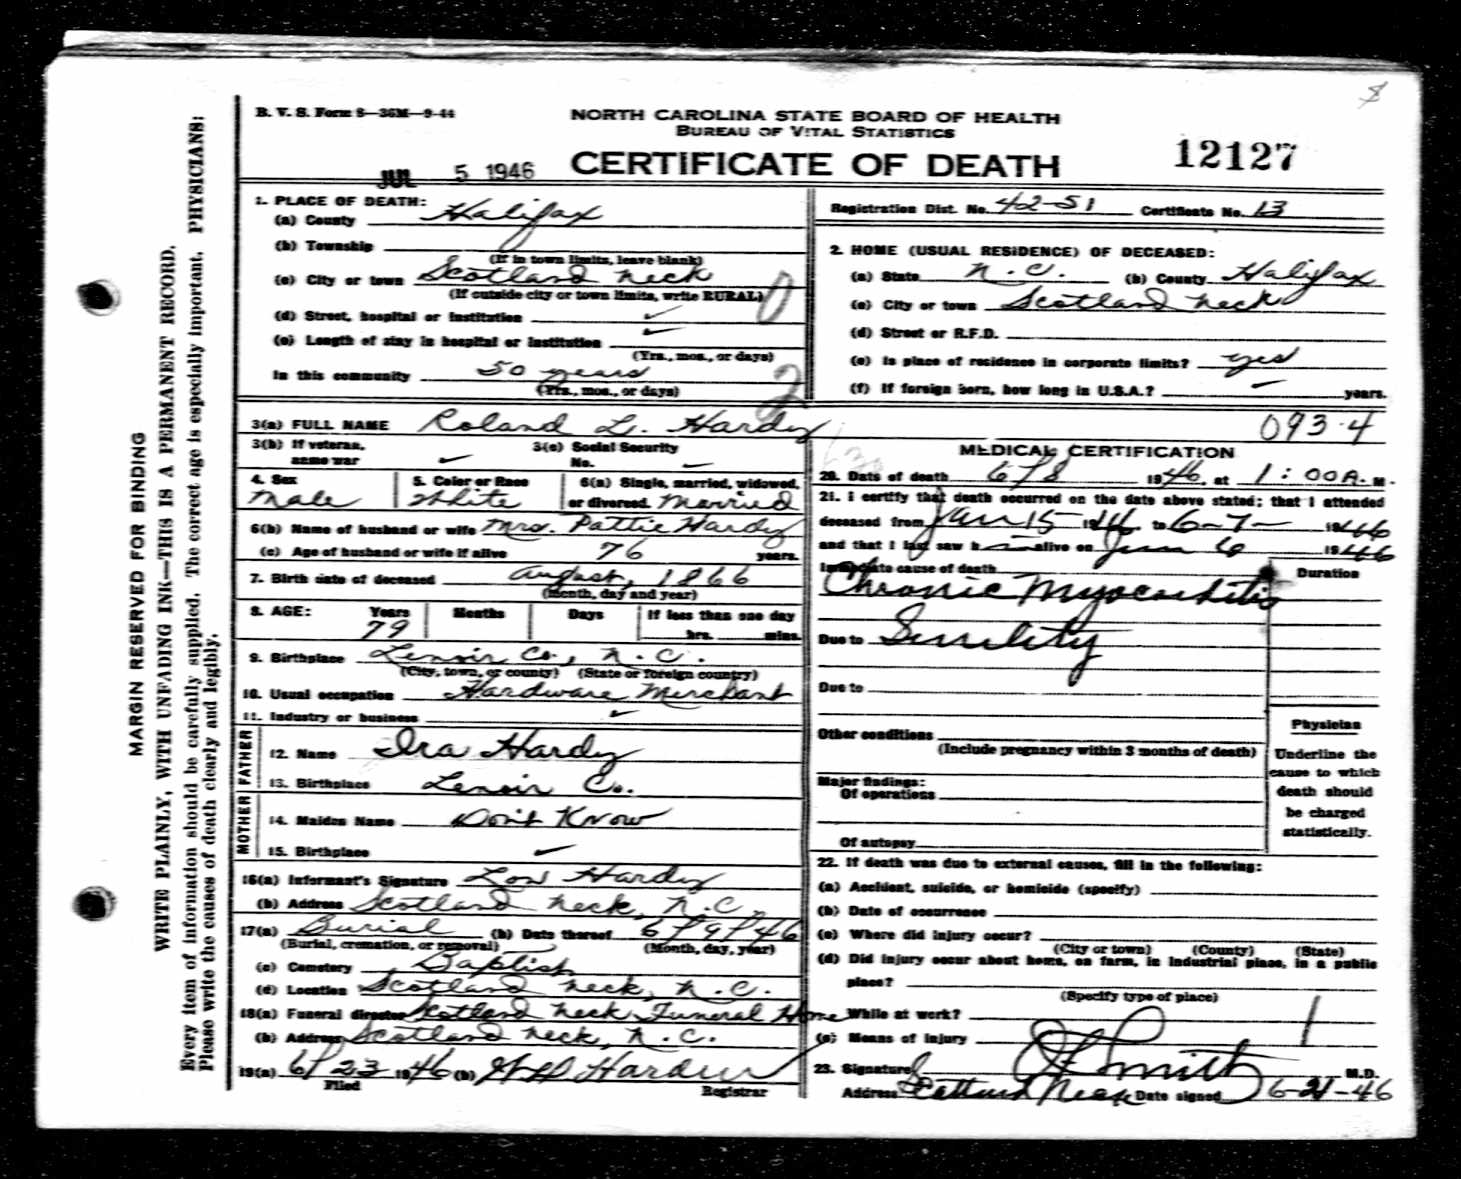 B. V. S. Form 8—36M—9-44
NORTH CAROLINA STATE BOARD OF HEALTH
BUREAU OF VITAL STATISTICS
JUL 5 1946 CERTIFICATE OF DEATH 12127
MARGIN RESERVED FOR BINDING
WRITE PLAINLY, WITH UNFADING INK—THIS IS A PERMANENT RECORD.
Every item of information should be carefully supplied. The correct age is especially important. PHYSICIANS:
Please write the causes of death clearly and legibly.
1. PLACE OF DEATH:
(a) County Halifax
(b) Township
(If in town limits, leave blank)
(c) City or town Scotland Neck
(If outside city or town limits, write RURAL)
(d) Street, hospital or institution ✓
(e) Length of stay in hospital or institution ✓
(Yrs., mos., or days)
In this community 50 years
(Yrs., mos., or days)
Registration Dist. No. 42-51 Certificate No. 13
2. HOME (USUAL RESIDENCE) OF DECEASED:
(a) State N.C. (b) County Halifax
(c) City or town Scotland Neck
(d) Street or R.F.D.
(e) Is place of residence in corporate limits? yes
(f) If foreign born, how long in U.S.A.? ✓ years.
3(a) FULL NAME Roland L. Hardy
3(b) If veteran, name war ✓ 3(c) Social Security No. ✓
4. Sex Male
5. Color or Race White
6(a) Single, married, widowed, or divorced. Married
6(b) Name of husband or wife Mrs. Pattie Hardy
(c) Age of husband or wife if alive 76 years.
7. Birth date of deceased August, 1866
(Month, day and year)
8. AGE: Years 79 Months Days If less than one day hrs. mins.
9. Birthplace Lenoir Co., N.C.
(City, town, or county) (State or foreign country)
10. Usual occupation Hardware Merchant
11. Industry or business ✓
FATHER
12. Name Ira Hardy
13. Birthplace Lenoir Co.
MOTHER
14. Maiden Name Don't Know
15. Birthplace ✓
16(a) Informant's Signature Lon Hardy
(b) Address Scotland Neck, N.C.
17(a) Burial (b) Date thereof 6/9/46
(Burial, cremation, or removal) (Month, day, year)
(c) Cemetery Baptist
(d) Location Scotland Neck, N.C.
18(a) Funeral director Scotland Neck Funeral Home
(b) Address Scotland Neck, N.C.
19(a) 6/23 1946 (b) Hardy
Filed Registrar
093-4
MEDICAL CERTIFICATION
20. Date of death 6/8 1946, at 1:00 A.M.
21. I certify that death occurred on the date above stated; that I attended
deceased from Jan 15 1946 to 6-7- 1946
and that I last saw h alive on Jun 6 1946
Immediate cause of death Duration
Chronic Myocarditis
Due to Senility
Due to
Other conditions
(Include pregnancy within 3 months of death)
Major findings:
Of operations
Of autopsy
Physician
Underline the
cause to which
death should
be charged
statistically.
22. If death was due to external causes, fill in the following:
(a) Accident, suicide, or homicide (specify)
(b) Date of occurrence
(c) Where did injury occur?
(City or town) (County) (State)
(d) Did injury occur about home, on farm, in industrial place, in a public
place?
(Specify type of place)
While at work?
(e) Means of injury
23. Signature Smith M.D.
Address Scotland Neck Date signed 6-21-46